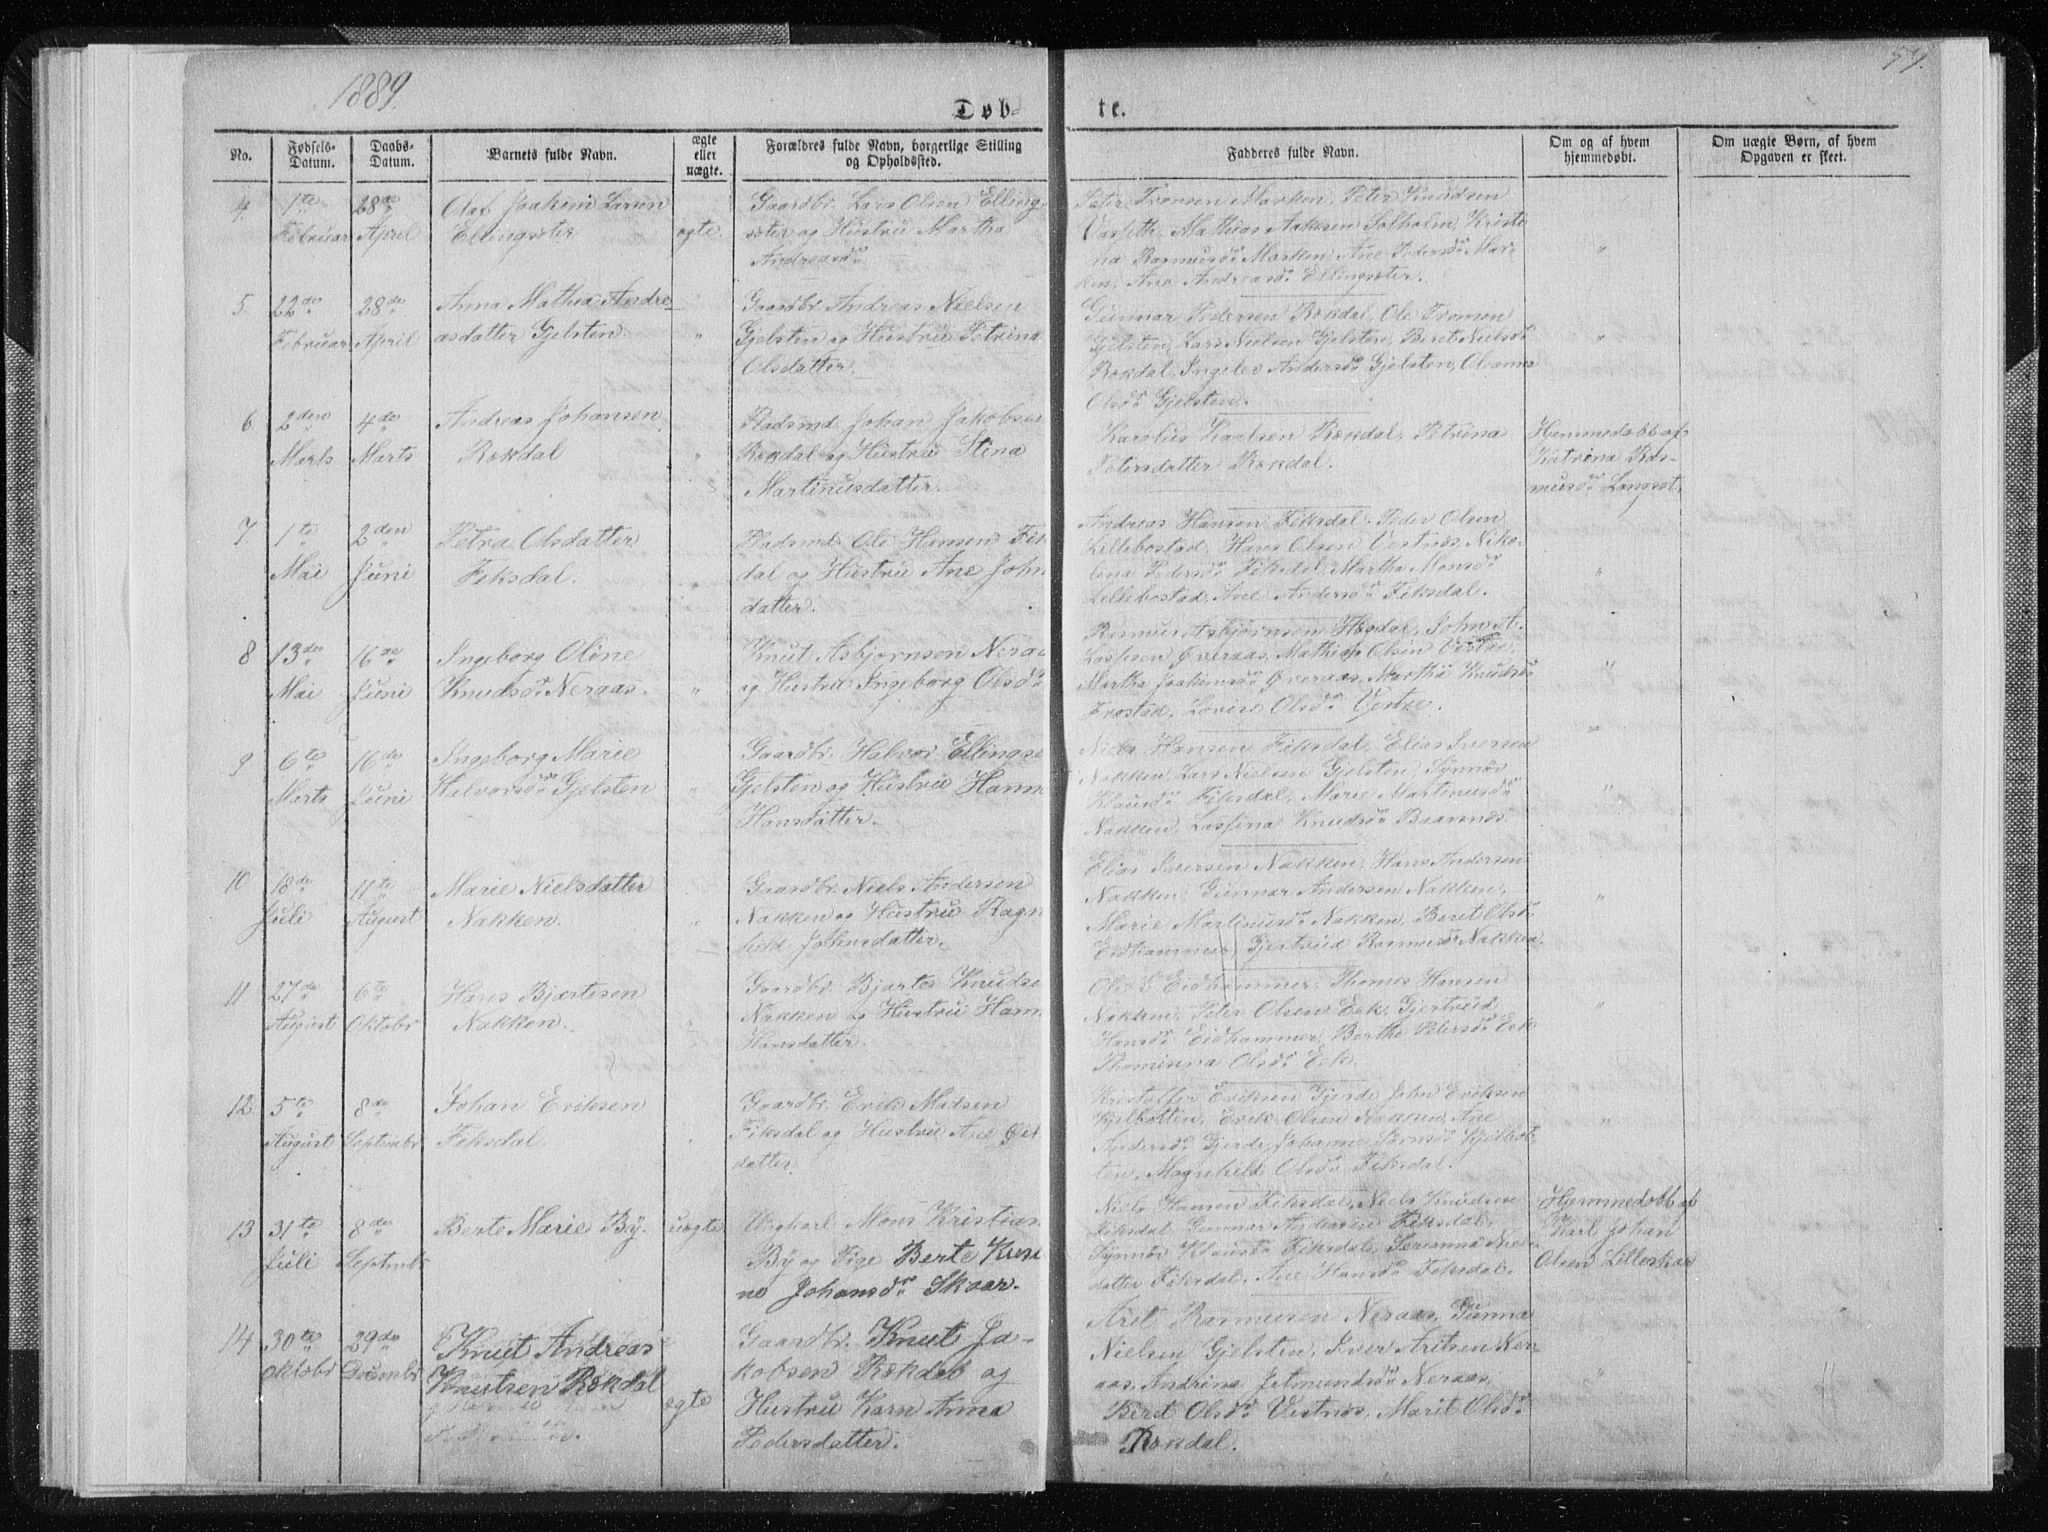 1889.
57.
Døb-
te.
No.
Fødsels-
Datum.
Daabs-
Datum.
Barnets fulde Navn.
ægte
eller
uægte.
Forældres fulde Navn, borgerlige Stilling
og Opholdssted.
Faddernes fulde Navn.
Om og af hvem
hjemmedøbt.
Om uægte Børn, af hvem
Opgaven er skeet.
4.
1ste
Februar
28de
April
Olaf Joakim Larsen
Ellingsæter
ægte.
Gaardbr. Lars Olsen Elling
sæter og Hustru Martha
Andreasdr
Peter Tronsen Marken, Peter Knudsen
Varseth, Mathias Aaksen Solholm, Kristi
na Rasmusdr Marken, Ane Pedersdr Mar-
ken, Ane Andreasdr Ellingsæter.
"
5.
22de
Februar
28de
April
Anna Mathea Andre-
asdatter Gjelsten
"
Gaardbr. Andreas Nielsen
Gjelsten og Hustru Petrina
Olsdatter.
Gunnar Pedersen Rekdal, Ole Tronsen
Gjelsten, Lars Nielsen Gjelsten, Beret Nielsdr
Rekdal, Ingelev Andersdr Gjelsten, Oleanna
Olsdr Gjelsten.
"
6.
2den
Marts
4de
Marts
Andreas Johansen
Rekdal
"
Pladsmd. Johan Jakobsen
Rekdal og Hustru Stina
Martinusdatter.
Karolus Karlsen Rekdal, Petrina
Petersdatter Rekdal.
Hemmedøbt af
Katrina Ras-
musdr Langset
7
1ste
Mai
2den
Juni
Petra Olsdatter
Feksdal.
"
Pladsmd. Ole Hansen Fik
dal og Hustru Ane John
datter.
Andreas Hansen Fiksdal, Peder Olsen
Lillebostad, Hans Olsen Vestnes, Niko-
lena Pedersdr Fiksdal, Martha Monsdr
Lillebostad, Ane Andersdr Fiksdal.
"
8
13de
Mai
16de
Juni
Ingeborg Oline
Knudsdr Neraas.
"
Knut Asbjørnsen Neraa
og Hustru Ingeborg Olsdr
Rasmus Asbjørnsen Hegdal, John A.
Lassesen Øveraas, Mathias Olsen Vestre,
Martha Joakimsdr Øveraas, Martha Knudsdr
Frostad, Lovise Olsdr Vestre.
"
9
6te
Marts
16de
Juni
Ingeborg Marie
Halvorsdr Gjelsten
"
Gaardbr. Halvor Ellingse
Gjelsten og Hustru Hann
Hansdatter.
Niels Hansen Fiksdal, Elias Iversen
Nakken, Lars Nielsen Gjelsten, Synnøv
Klausdr Fiksdal, Marie Martinusdr
Nakken, Lassina Knudsdr Baarnes
"
10
18de
Juli
11te
August
Marie Nielsdatter
Nakken.
"
Gaardbr. Niels Andersen
Nakken og Hustru Ragn
hild Johnsdatter.
Elias Iversen Nakken, Hans Andersen
Nakken, Gunnar Andersen Nakken,
Marie Martinusdr Nakken, Beret Olsdr
Eidhammer, Gjertrud Rasmusdr Nakken.
"
11
27de
August
6te
Oktobr
Hans Bjartesen
Nakken.
"
Gaardbr. Bjarte Knudse
Nakken og Hustru Hann
Hansdatter.
Eidhammer, Thomas Hansen
Nakken, Peter Olsen Eek, Gjertrud
Hansdr Eidhammer, Berthe Petersdr Eek
Thominna Olsdr Eek.
"
12
5te
August
8de
Septembr
Johan Eriksen
Feksdal.
"
Gaardbr. Erik Madsen
Fiksdal og Hustru Ane
datter
Kristoffer Eriksen Gjerde, John Eriksen
Kjelbotten, Erik Olsen Nakken, Ane
Andersdr Gjerde, Johanne Kjelbot-
ten, Magnhild Olsdr Fiksdal.
"
13
31te
Juli
8de
Septembr
Berte Marie By.
uægte
Ungkarl Mons Kristian
By og Pige Berte Kris
ne Johansdr Skaar.
Niels Hansen Fiksdal, Niels Knudsen
Fiksdal, Gunnar Andersen Fiksdal,
Synnøv Klausdr Fiksdal, Serianna Niels
datter Fiksdal, Ane Hansdr Fiksdal.
Hjemmedøbt af
Karl Johan
Olsen Lilleskar
14
30te
Oktobr
29de
Decembr
Knut Andreas
Knutsen Rekdal
ægte
Gaardbr. Knut Ja-
kobsen Rekdal og
Hustru Karn Anna
Pedersdatter.
Arit Rasmusen Neraas, Gunna
Nielsen Gjelsten, Iver Aritsen Ner-
aas, Andrina Jetmundsdr Neraas,
Beret Olsdr Vestnes, Marit Olsdr
Rekdal.
"